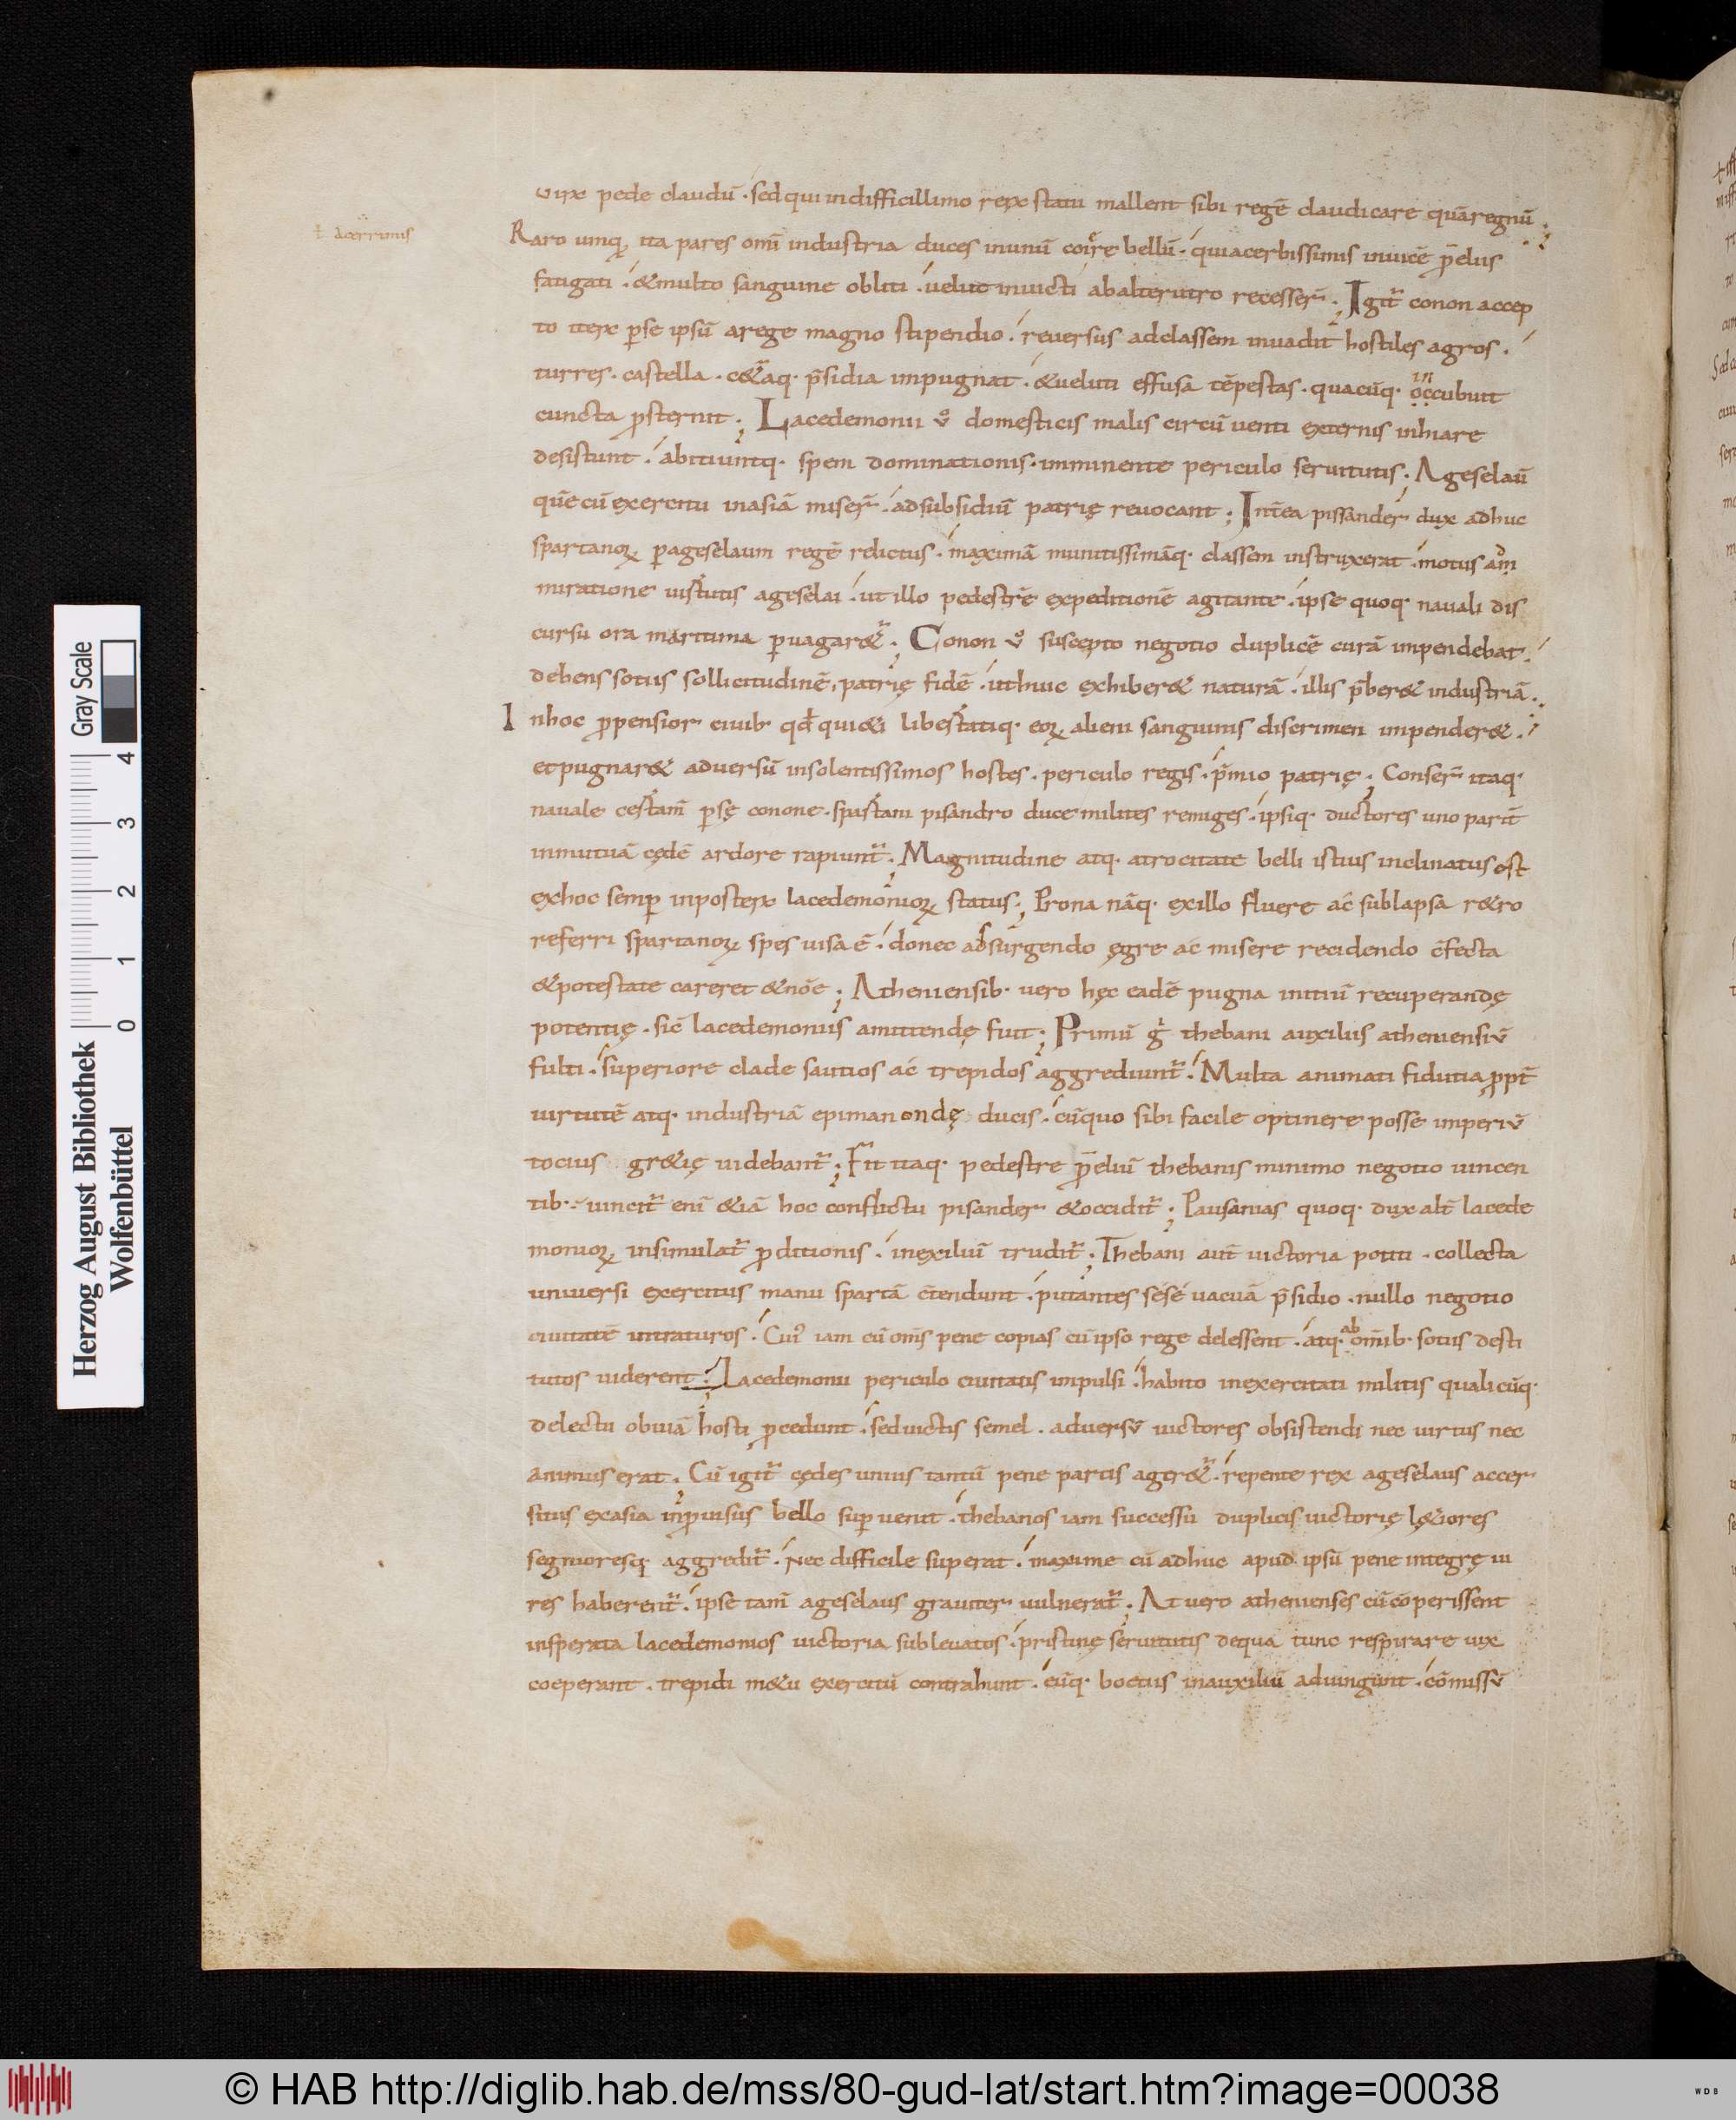 uirȩ pede claudū · sed qui indifficillimo reȩ statu mallent sibi regē claudicare quā regnū ;
ł acerrimis
Raro umq; ita pares omī industria duces inunū coire bellū · qui acerbissimis inuicē p̄eliis
fatigati · & multo sanguine obliti · uelut inuicti abalterutro recesser̄ ; Igit̄ conon accep
to iteȩ ꝑse ipsū arege magno stipendio · reuersus adclassem inuadit hostiles agros ·
turres · castella · c&̄aq· p̄sidia impugnat · & ueluti effusa tēpestas · quacūq· occubuit
in
cuncta ꝓsternit ; Lacedemonii v̊ domesticis malis circūuenti externis inhiare
desistunt · abitiuntq· spem dominationis · imminente periculo seruitutis ; Ageselaū
quē cū exercitu inasiā miser̄ · adsubsidiū patrię reuocant ; Int̄ea pissander dux adhuc
spartanoꝝ ꝑageselaum regē relictus · maximā munitissimāq· classem instruxerat · motus am̄
miratione uistutis agiselai · ut illo pedestrē expeditionē agitante · ipse quoq· nauali dis
cursu ora maritima ꝑuagar&̄ ; Conon v̊ suscepto negotio duplicē curā impendebat ·
debens sotiis sollicitudinē, patrię fidē · ut huic exhiber& naturā · illis p̄ber& industriā ·
Inhoc ꝓpensior ciuib· qđ qui&i libestatiq· eoꝝ alieni sanguinis discrimen impender& ·
et pugnar& aduersū insolentissimos hostes · periculo regis · p̄mio patrię ; Conser̄ itaq·
nauale cestam̄ ꝑsę conone · spastani pisandro duce milites remiges · ipsiq· ductores uno parit̄
inmutuā cędē ardore rapiunt̄ ; Magnitudine atq· atrocitate belli istius inclinatus est
exhoc semꝑ inposterū lacedemonioꝝ status ; Prona nāq· exillo fluere ac sublapsa r&ro
referri spartanoꝝ spes uisa ē · donec adsurgendo ęgre ac misere recidendo c̄fecta
& potestate careret & nōe ; Atheniensib· vero hęc eadē pugna initiū recuperandę
potentię · sic lacedemoniis amittendę fuit ; Primū g̊ thebani auxiliis atheniensiū
fulti · superiore clade sautios ac trepidos aggrediunt̄ · Multa animati fidutia ꝓpt̄
uirtutē atq· industriā epimanondę ducis · cū quo sibi facile optinere posse imperiū
tocius gr&ię uidebant̄ ; Fit itaq· pedestre p̄eliū thebanis minimo negotio uincen
tib· uincit̄ enī &iā hoc conflictu pisander & occidit̄ ; Pausanias quoq· dux alt̄ lacede
monioꝝ insimulat̄ ꝓditionis · inexiliū trudit̄ ; Thebani aut̄ uictoria potiti · collecta
uniuersi exercitus manu spartā c̄tendunt · putantes sese uacuā p̄sidio · nullo negotio
ciuitatē intraturos · Cui' iam cū om̄s pene copias cū ipso rege delessent · atq· ab om̄ib· sotiis desti
tutos uiderent ; Lacedemonii periculo ciuitatis impulsi · habito inexercitati militis qualicūq·
delectu obuiā hosti ꝓcedunt · sed uictis semel · aduersū uictores obsistendi nec uirtus nec
animus erat ; Cū igit̄ cędes unius tantū pene partis ager&̄ · repente rex ageselaus accer
situs exasia inꝓuisus bello suꝑuenit · thebanos iam successu duplicis uictorię lę&iores
segnioresq· aggredit̄ · Nec difficile superat · maxime cū adhuc apud ipsū pene integrę ui
res haberent̄ · ipse tam̄ ageselaus grauiter uulnerat̄ ; At vero athenienses cū cōperissent
insperata lacedemonios uictoria subleuatos · pristinę seruitutis dequa tunc respirare uix
coeperant · trepidi m&u exercitū contrahunt · eūq· boetiis inauxiliū adiungunt · cōmissū
Herzog August Bibliothek
Wolfenbüttel
0 1 2 3 4
Gray Scale
© HAB http://diglib.hab.de/mss/80-gud-lat/start.htm?image=00038
WDB